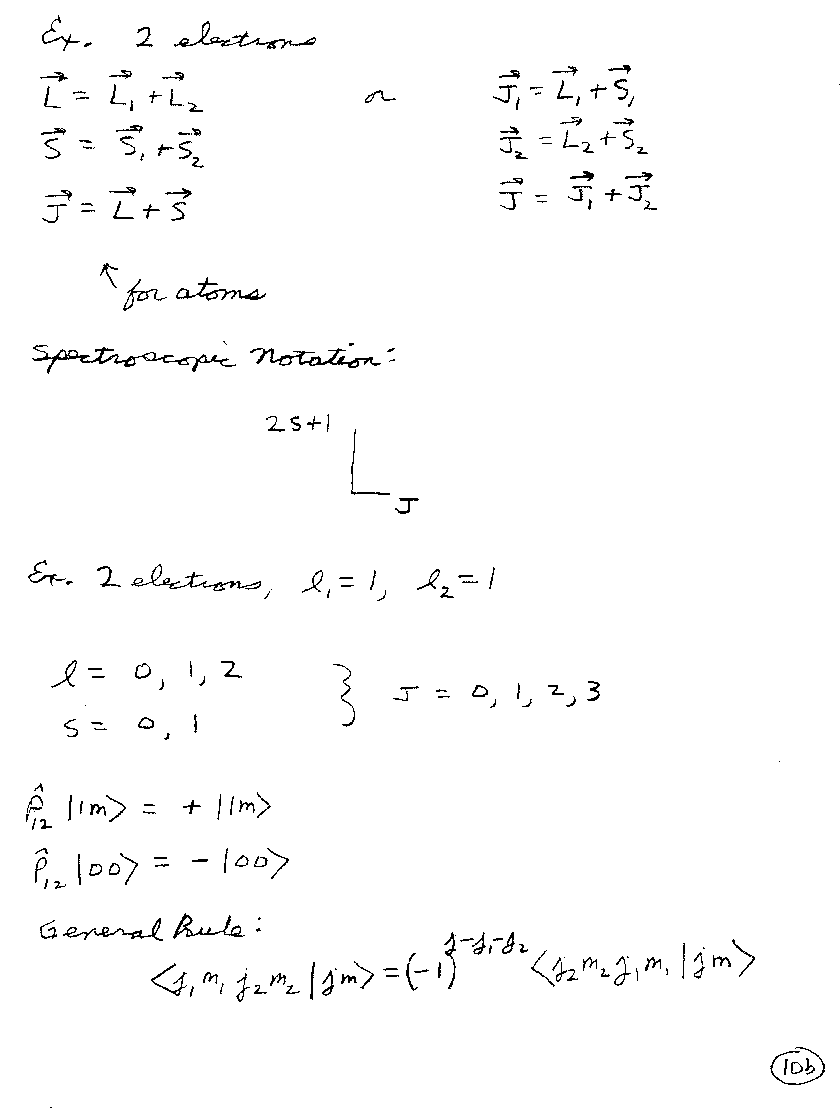 Ex. 2 electrons
L⃗ = L⃗₁ + L⃗₂ or J⃗₁ = L⃗₁ + S⃗₁
S⃗ = S⃗₁ + S⃗₂ J⃗₂ = L⃗₂ + S⃗₂
J⃗ = L⃗ + S⃗ J⃗ = J⃗₁ + J⃗₂
↖ for atoms
Spectroscopic Notation:
2S+1
L
J
Ex. 2 electrons, ℓ₁ = 1, ℓ₂ = 1
ℓ = 0, 1, 2 } J = 0, 1, 2, 3
s = 0, 1
P̂₁₂ |1m> = + |1m>
P̂₁₂ |00> = - |00>
General Rule:
<j₁ m₁ j₂ m₂ | jm> = (-1)^(j-j₁-j₂) <j₂ m₂ j₁ m₁ | jm>
10b